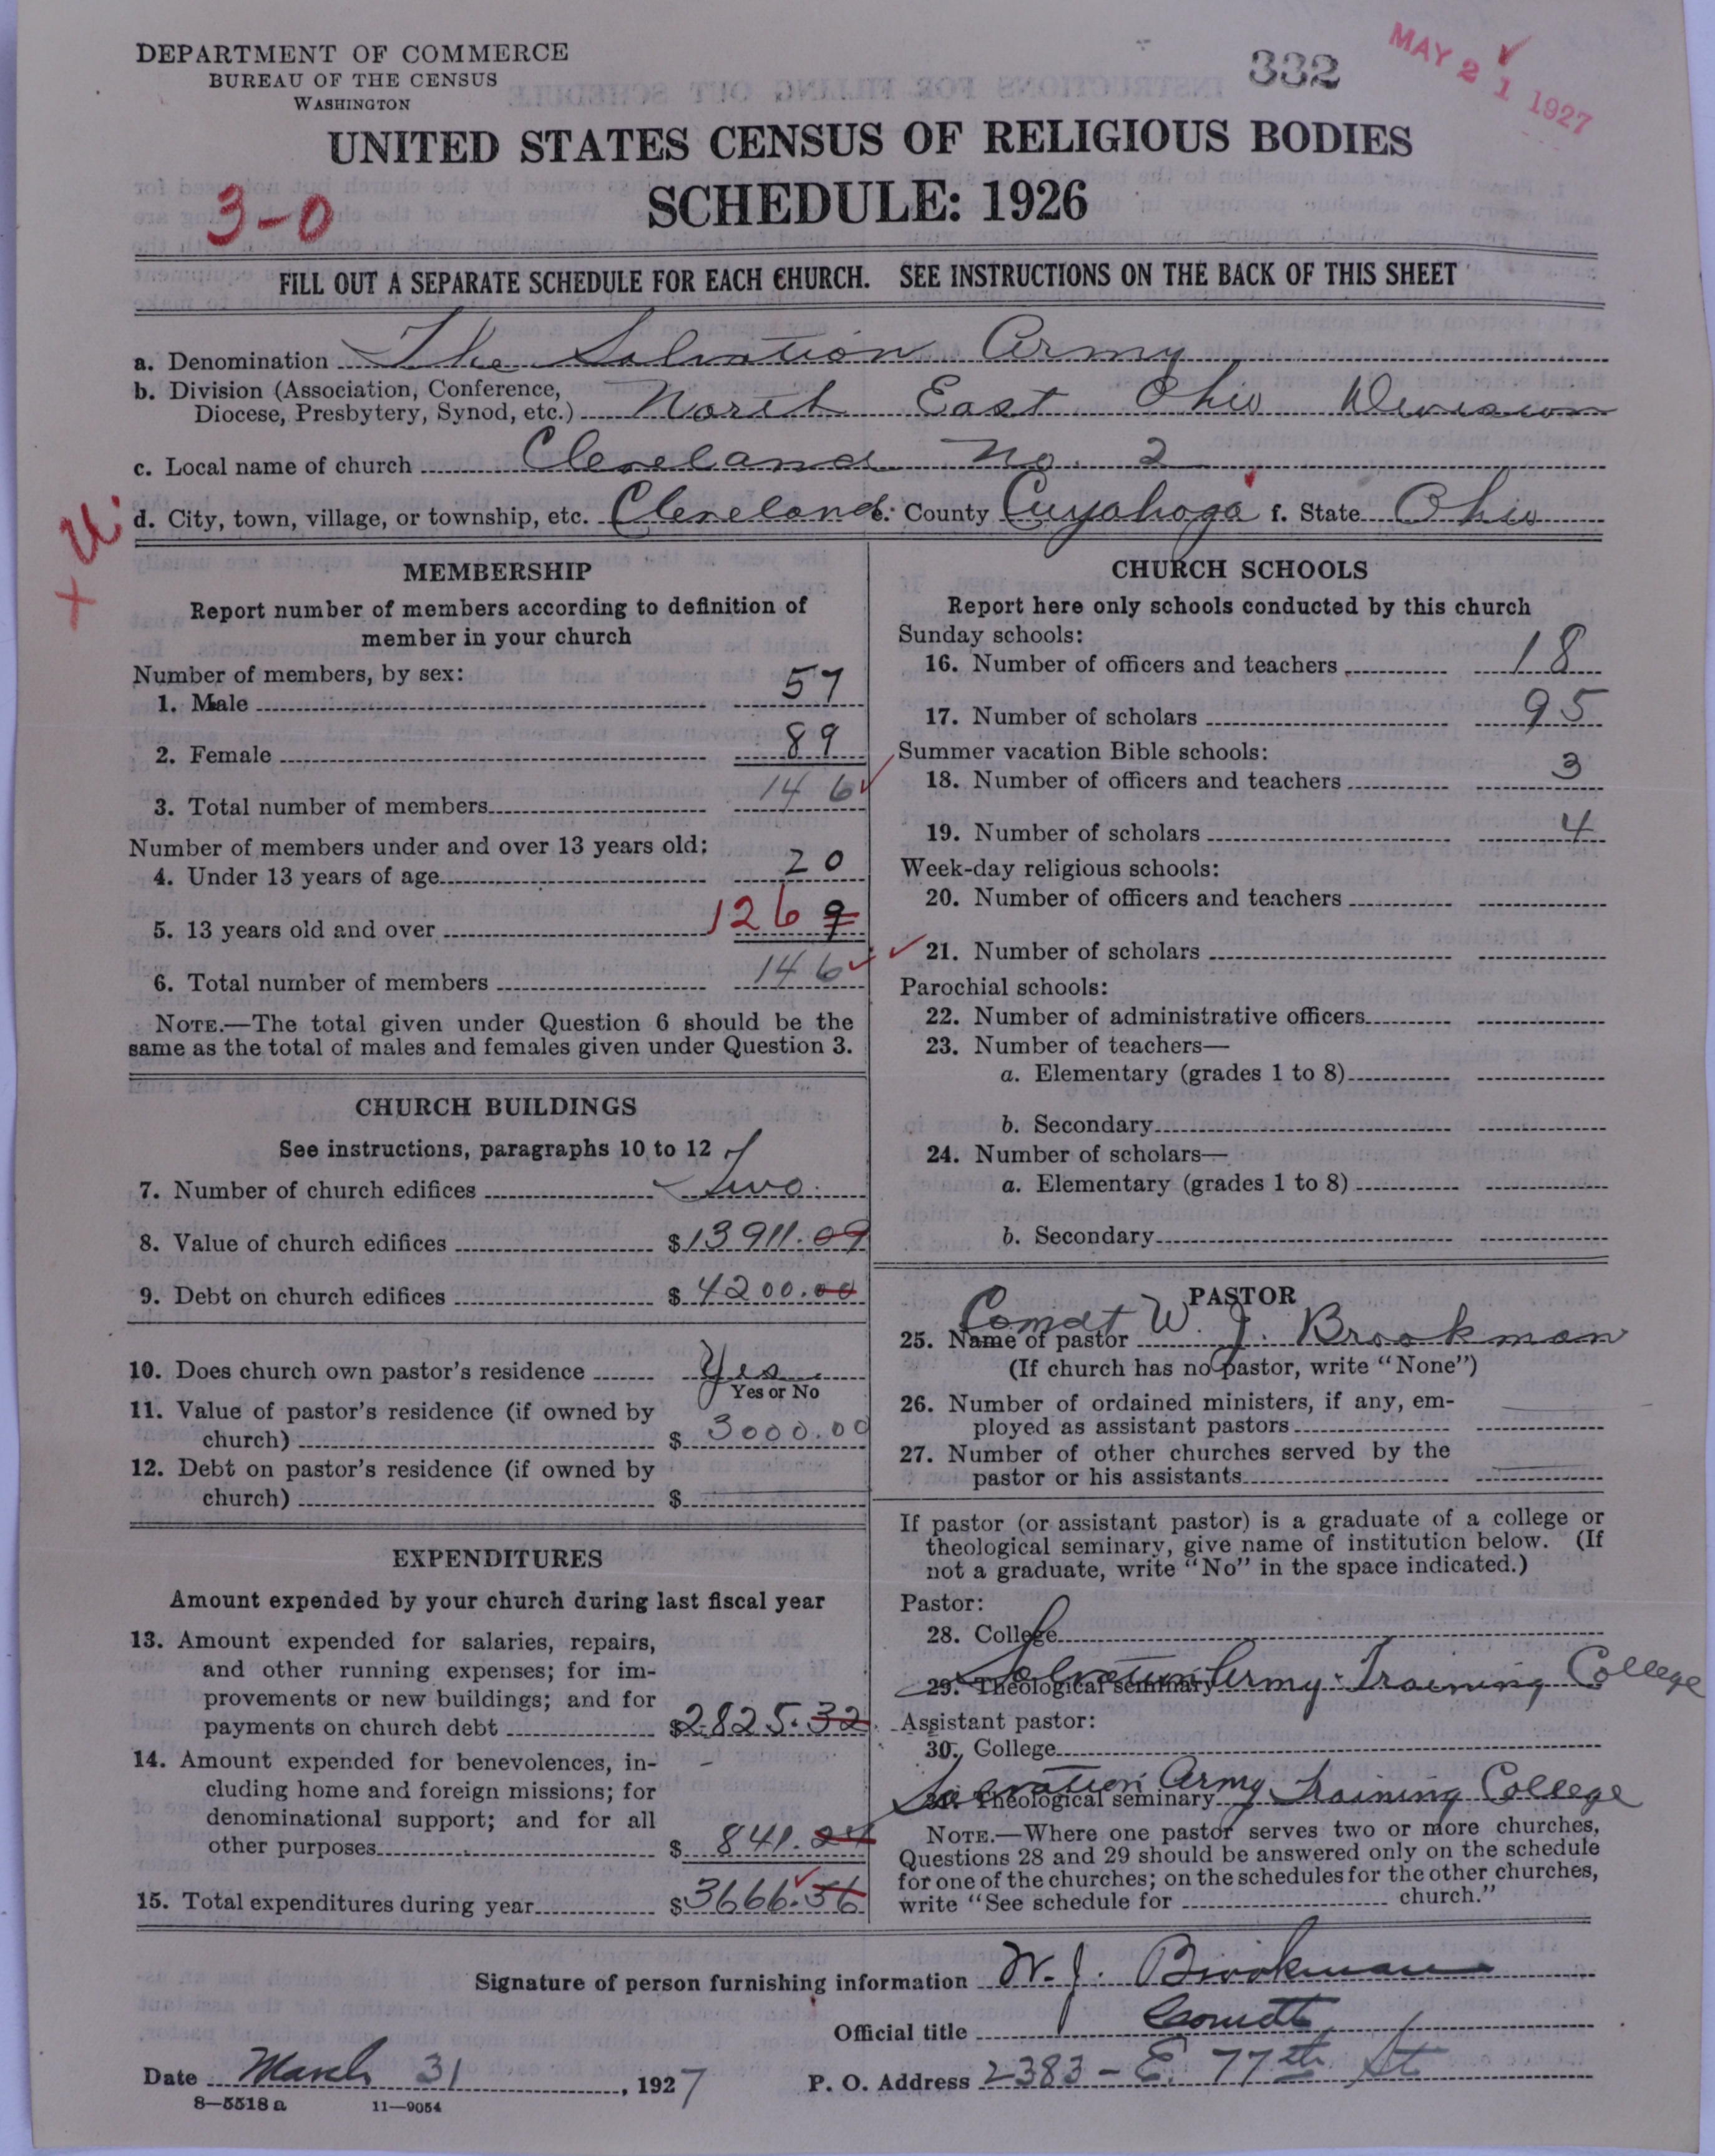 DEPARTMENT OF COMMERCE
BUREAU OF THE CENSUS
WASHINGTON
332
MAY 21 1927
UNITED STATES CENSUS OF RELIGIOUS BODIES
SCHEDULE: 1926
3-0
FILL OUT A SEPARATE SCHEDULE FOR EACH CHURCH. SEE INSTRUCTIONS ON THE BACK OF THIS SHEET
a. Denomination The Salvation Army
b. Division (Association, Conference,
Diocese, Presbytery, Synod, etc.) North East Ohio Division
c. Local name of church Cleveland No. 2
d. City, town, village, or township, etc. Cleveland e. County Cuyahoga f. State Ohio
MEMBERSHIP
Report number of members according to definition of
member in your church
Number of members, by sex:
1. Male 57
2. Female 89
3. Total number of members 146
Number of members under and over 13 years old:
4. Under 13 years of age 20
5. 13 years old and over 126 9
6. Total number of members 146
NOTE.—The total given under Question 6 should be the
same as the total of males and females given under Question 3.
CHURCH BUILDINGS
See instructions, paragraphs 10 to 12
7. Number of church edifices Two
8. Value of church edifices $13911.09
9. Debt on church edifices $4200.00
10. Does church own pastor's residence Yes
Yes or No
11. Value of pastor's residence (if owned by
church) $3000.00
12. Debt on pastor's residence (if owned by
church) $
EXPENDITURES
Amount expended by your church during last fiscal year
13. Amount expended for salaries, repairs,
and other running expenses; for im-
provements or new buildings; and for
payments on church debt $2825.32
14. Amount expended for benevolences, in-
cluding home and foreign missions; for
denominational support; and for all
other purposes $841.24
15. Total expenditures during year $3666.56
CHURCH SCHOOLS
Report here only schools conducted by this church
Sunday schools:
16. Number of officers and teachers 18
17. Number of scholars 95
Summer vacation Bible schools:
18. Number of officers and teachers 3
19. Number of scholars 4
Week-day religious schools:
20. Number of officers and teachers
21. Number of scholars
Parochial schools:
22. Number of administrative officers
23. Number of teachers—
a. Elementary (grades 1 to 8)
b. Secondary
24. Number of scholars—
a. Elementary (grades 1 to 8)
b. Secondary
PASTOR
25. Name of pastor Comdt W. J. Brookman
(If church has no pastor, write "None")
26. Number of ordained ministers, if any, em-
ployed as assistant pastors
27. Number of other churches served by the
pastor or his assistants
If pastor (or assistant pastor) is a graduate of a college or
theological seminary, give name of institution below. (If
not a graduate, write "No" in the space indicated.)
Pastor:
28. College
29. Theological seminary Salvation Army Training College
Assistant pastor:
30. College
31. Theological seminary Salvation Army Training College
NOTE.—Where one pastor serves two or more churches,
Questions 28 and 29 should be answered only on the schedule
for one of the churches; on the schedules for the other churches,
write "See schedule for church."
Signature of person furnishing information W. J. Brookman
Official title Comdt
Date March 31, 1927 P. O. Address 2383 - E. 77th St
8—5518a 11—9054